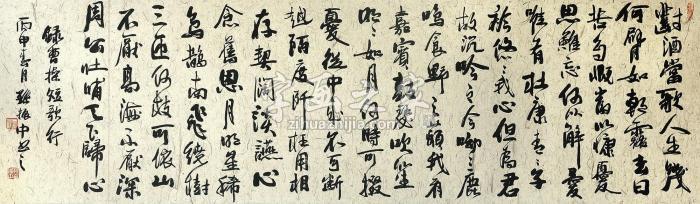 對酒當歌人生幾
何譬如朝露去日
苦多慨當以慷憂
思難忘何以解憂
唯有杜康青青子
衿悠悠我心但為君
故沉吟至今呦呦鹿
鳴食野之蘋我有
嘉賓鼓瑟吹笙
明明如月何時可掇
憂從中來不可斷
越陌度阡枉用相
存契闊談讌心
念舊恩月明星稀
烏鵲南飛繞樹
三匝何枝可依山
不厭高海不厭深
周公吐哺天下歸心
錄曹操短歌行
丙申春月孫振中書
字画之家
zihuazhijia.com